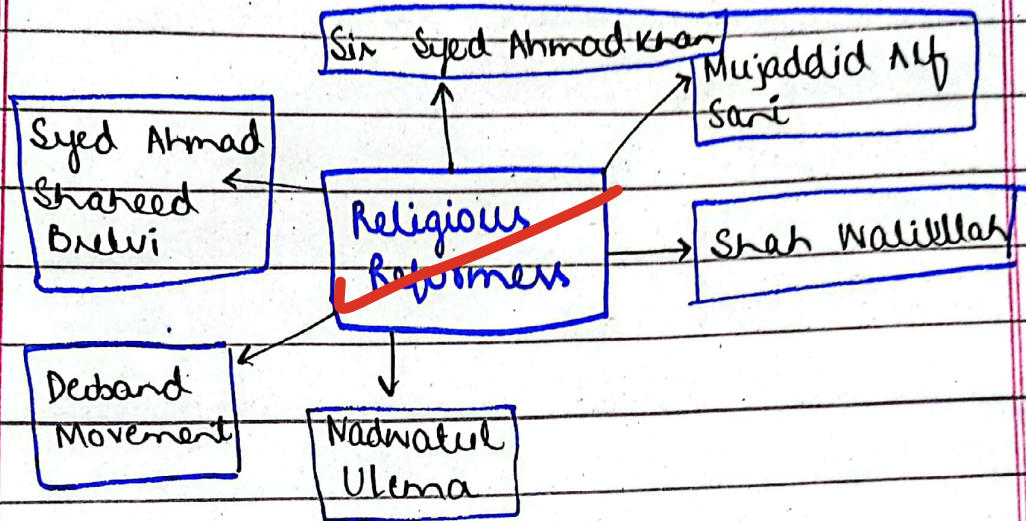 Sir Syed Ahmad Khan
Mujaddid Alf
Sani
Syed Ahmad
Shaheed
Brelvi
Religious
Reformers
Shah Waliullah
Deoband
Movement
Nadwatul
Ulema